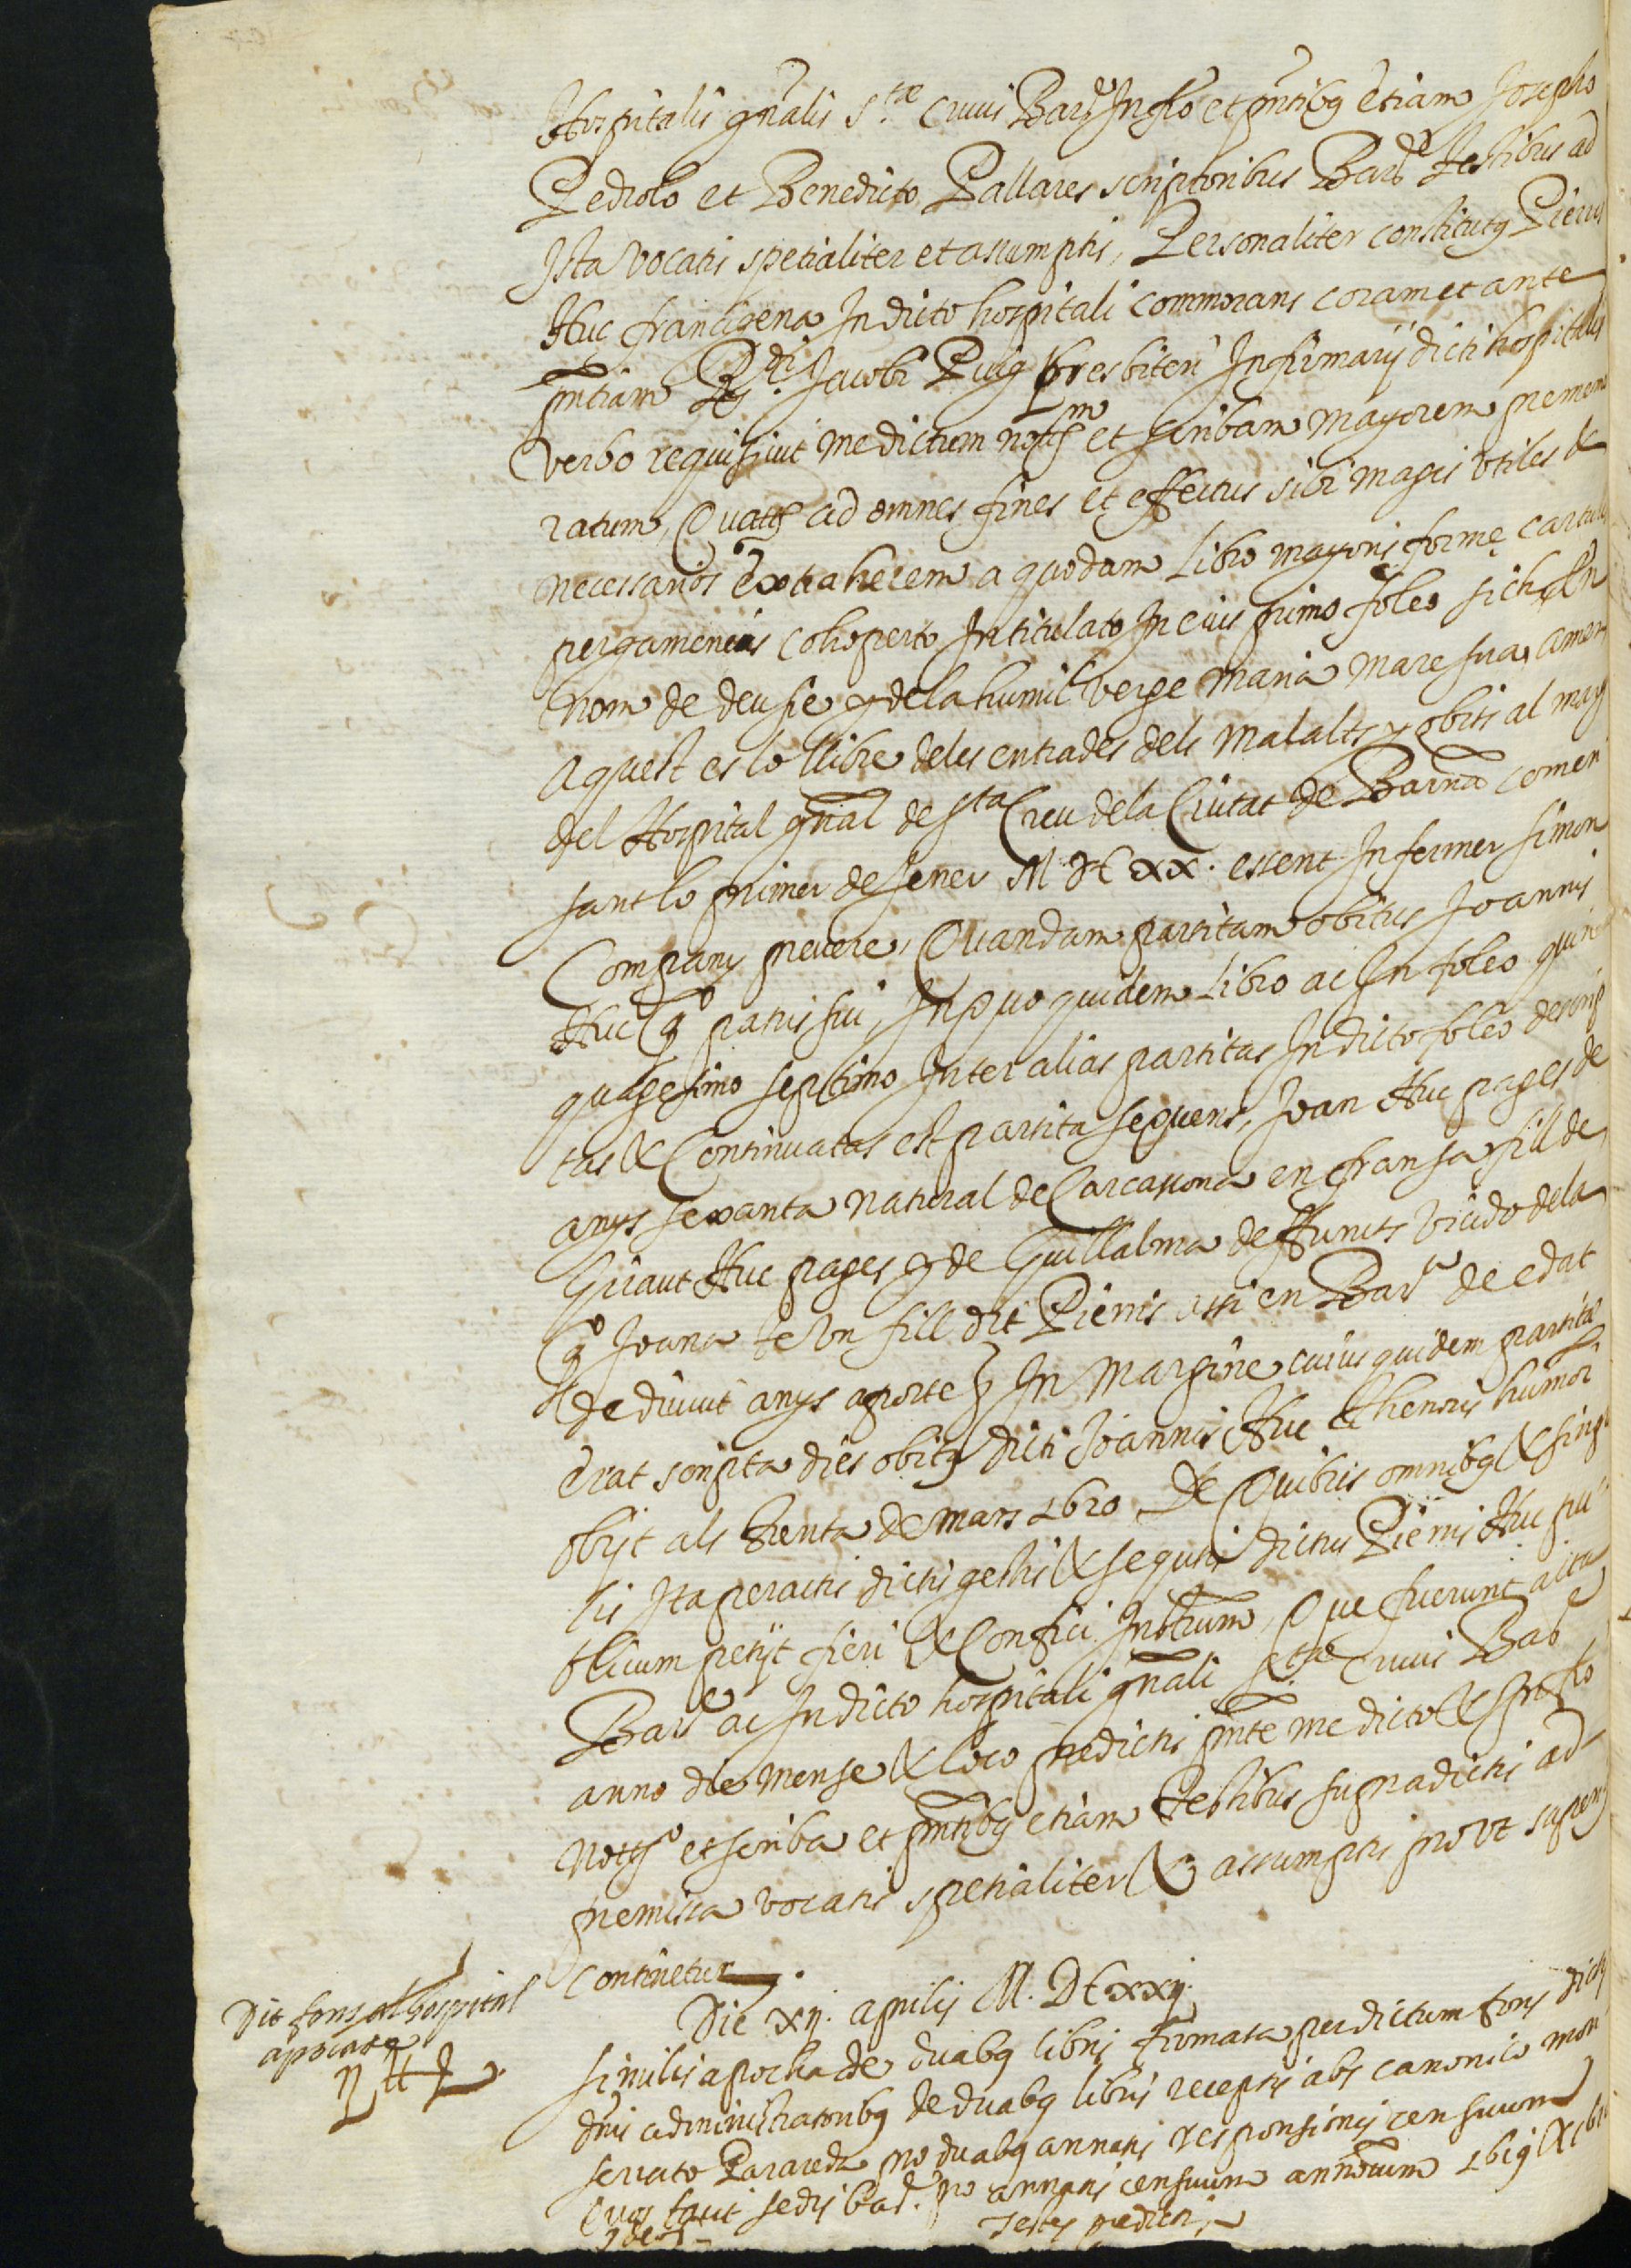 Hospitalis gñalis S.tæ Crucis Barñe Infro et pñtibq etiam Josepho
Pedrolo et Benedicto Pallares scriptoribus Barñe testibus ad
Ista vocatis spetialiter et assumptis, Personaliter constitutq Pierris
Huc francigena In dicto hospitali commorans coram et ante
pñtiam R.di Jacobi Puig presbiteri Infirmarij dicti hospitalis
verbo requisivit me dictum nottm et scribam mayorem pre memo
ratum, Quatq ad omnes fines et effectus sibi magis vtiles &
necessarios extraherem a quodam libro mayoris forme cartulis
pergameneis cohoperto Intitulato In cuis primo foleo sich En
nom de deu sie y de la humil verge maria mare sua, Amen
Aquest es lo llibre deles entrades dels malalts y obits al mag
del Hospital gñal de Sta Creu dela Ciutat de Barna comen
sant lo primer de Jener M DC xx. essent Infermer Simon
Company prevere, Quandam partitam obitus Joannis
Huc q.o patris sui, In quo quidem libro ac In foleo quin
quagesimo septimo Inter alias partitas In dicto foleo descrip
tas & Continuatas est partita sequens, Joan Huc pages de
anys sexanta natural de Carcassona en fransa fill de
Guiaut Huc pages y de Guillalma defuncts viudo dela
q.o Joana te vn fill dit Pierris assi en Bar.a de edat
de divuit anys aporte & In margine cuius quidem partite
erat scripta dies obitq dicti Joannis Huc thenoris humor
obijt als trenta de mars 1620 De Quibus omnibq & singu
lis Ita peractis dictis gestis & sequtis dictus Pierris Huc pu
blicum petijt fieri & Confici Instrum, Que fuerunt acta
Barñe ac In dicto hospitali gñali S.tæ Crucis Barñe
anno die mense & loco predictis pñte me dicto & Infro
Notto et scriba et pñtibq etiam testibus supradictis ad
premissa vocatis spetialiter & assumptis provt superq
Continetur.
Die xij. aprilis M. DC xxij.
Dit fons al hospital
apocata
2 ll
Similis apocha de duabq libris firmata per dictum fons dictis
dñis administratoribq de duabq libris receptis abs canonico mon
serrato Pararedz pro duabq annatis responsionis censuum